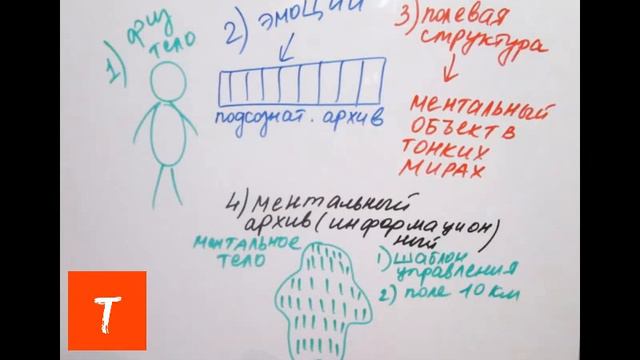 1) физ
тело
2) эмоций
подсознат. архив
3) полевая
структура
ментальный
объект в
тонких
мирах
4) ментальный
архив (информацион
ный)
ментальное
тело
1) шаблон
управления
2) поле 10 км
T